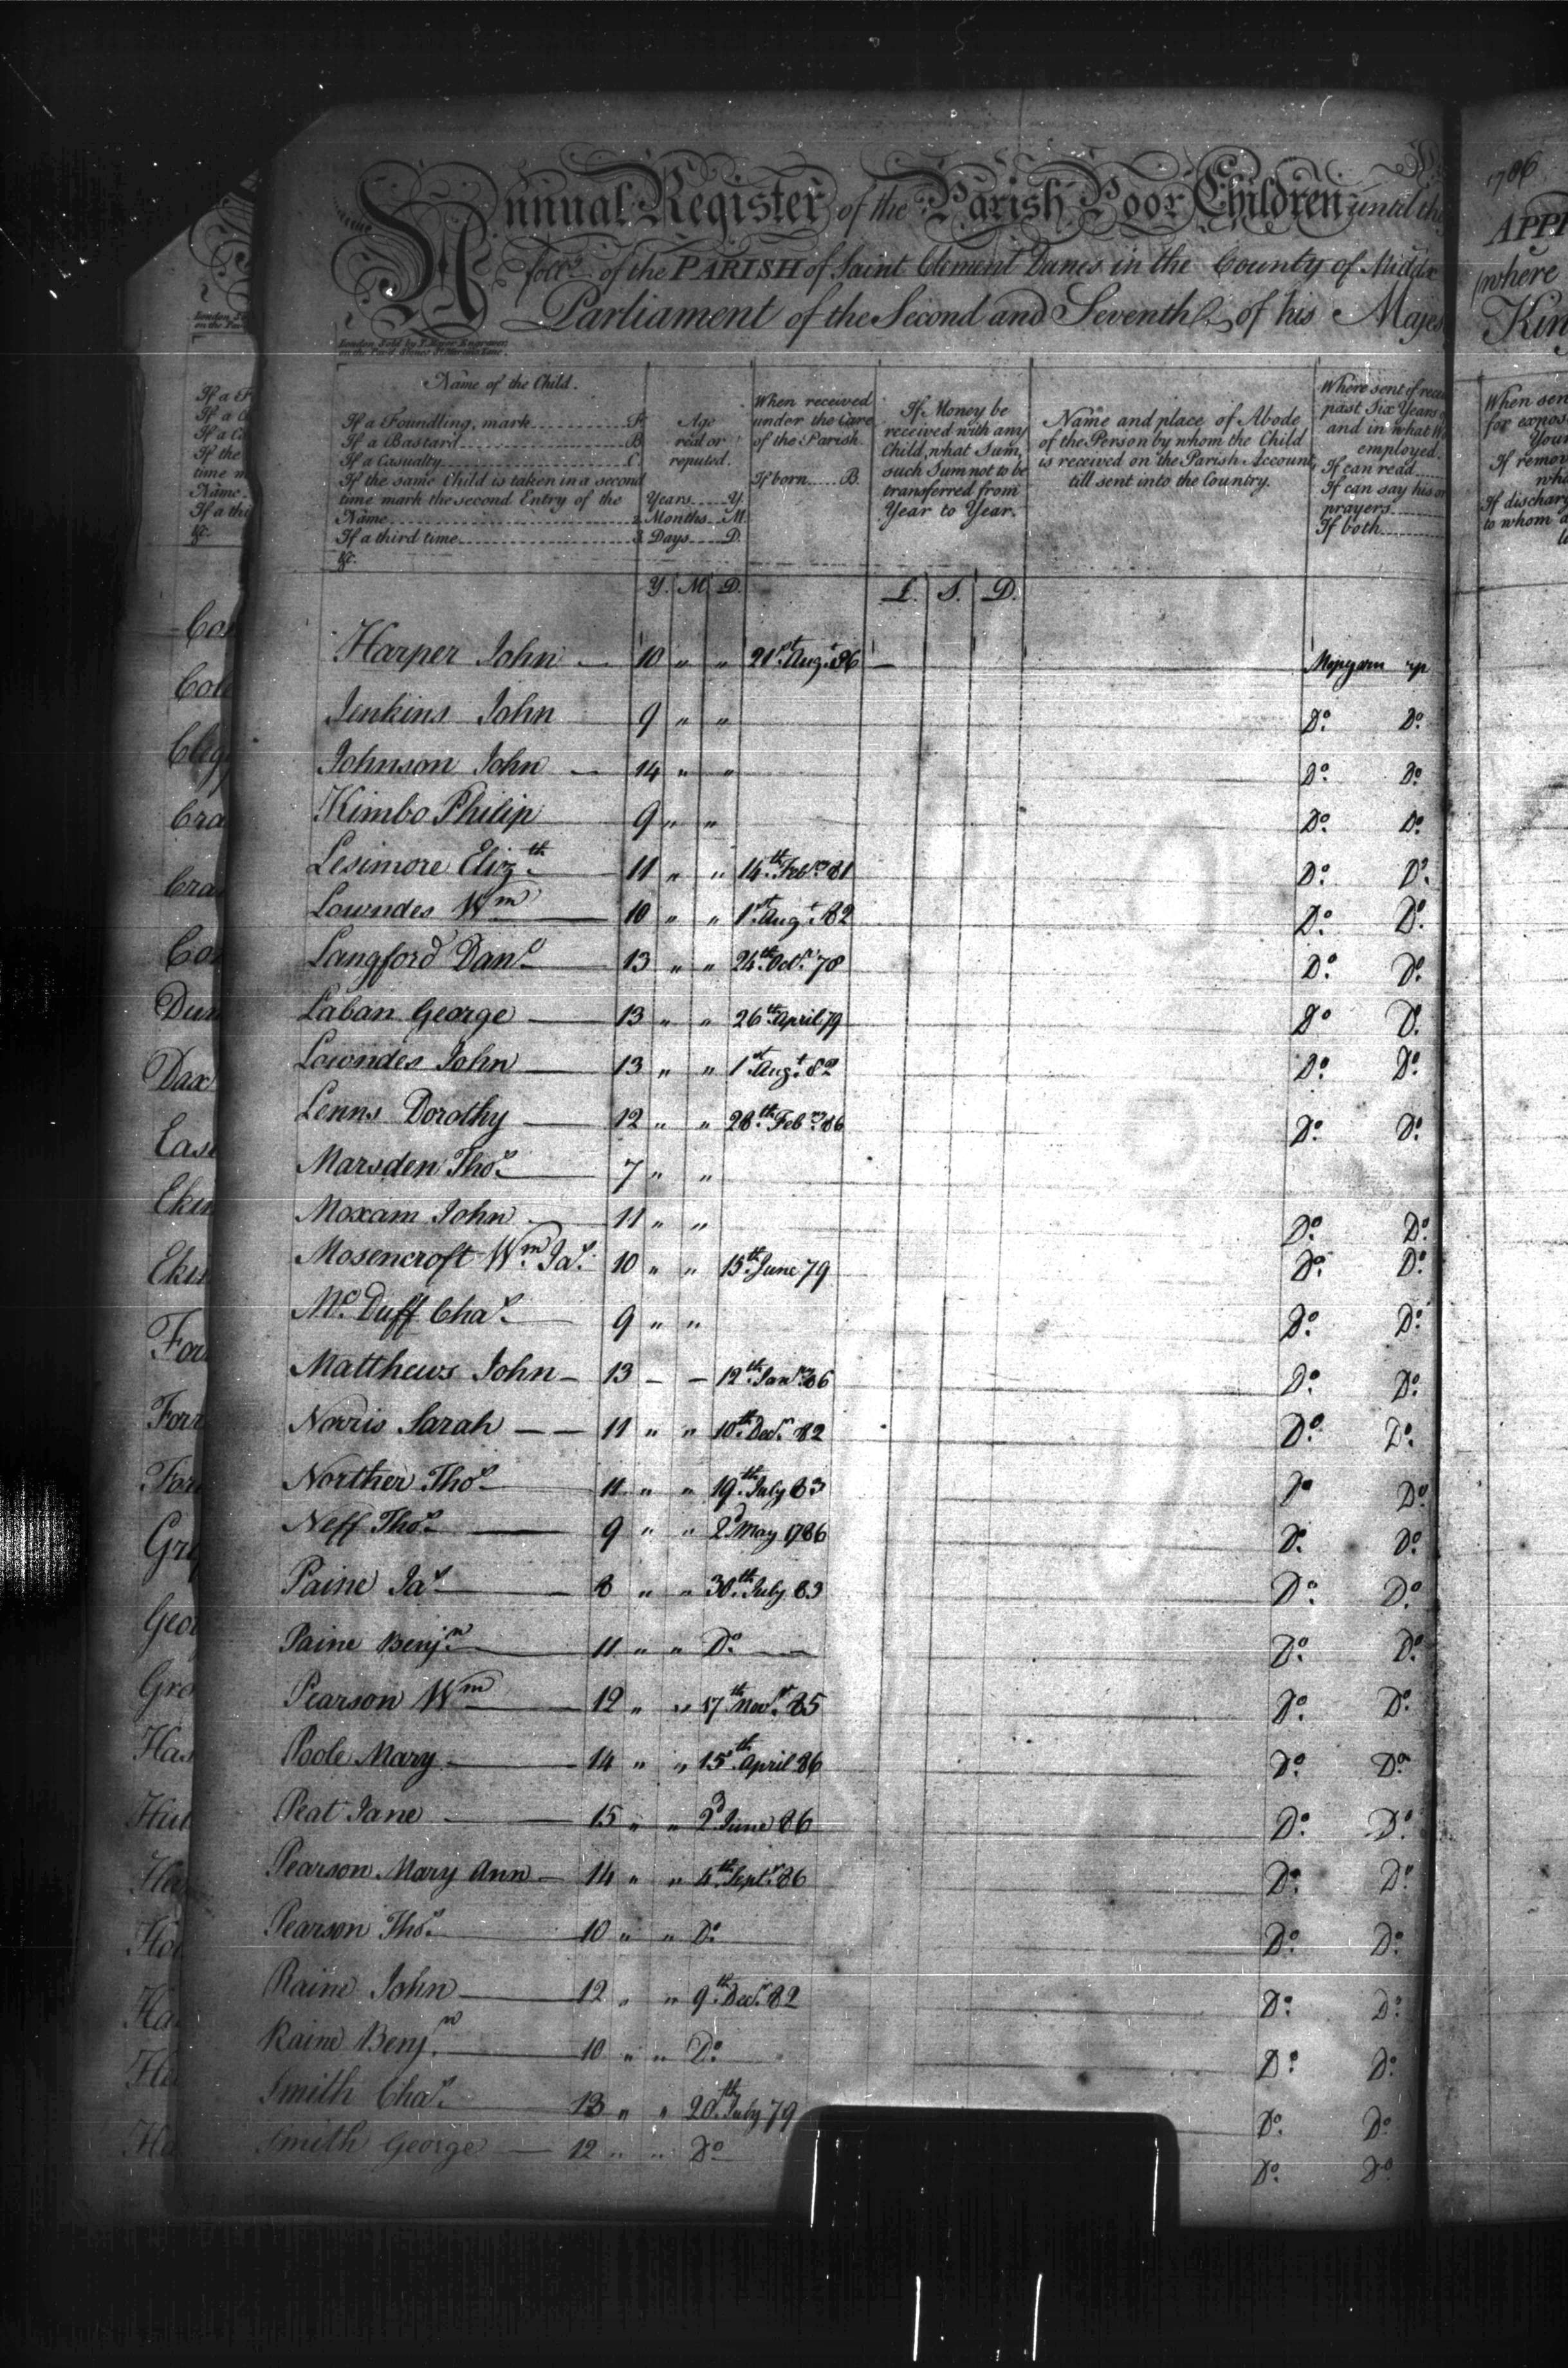 Annual Register of the Parish Poor Children until the
of the PARISH of Saint Clement Danes in the County of Middx
Parliament of the Second and Seventh of his Majes
Name of the Child.
If a Foundling, mark F
If a Bastard B
If a Casualty C
If the same Child is taken in a second
time mark the second Entry of the
Name 2
If a third time 3
&c.
Age
real or
reputed.
Years Y.
Months M.
Days D.
When received
under the Care
of the Parish.
If born B.
If Money be
received with any
Child, what Sum,
such Sum not to be
transferred from
Year to Year.
Name and place of Abode
of the Person by whom the Child
is received on the Parish Account,
till sent into the Country.
Where sent if
past Six Years
and in what
employed.
If can read
If can say his
prayers
If both
Y. M. D. £. S. D.
Harper John — 10 " " 21st Augt 86 —
Jenkins John 9 " " Do. Do.
Johnson John — 14 " " Do. Do.
Kimbo Philip 9 " " Do. Do.
Lesimore Elizth 11 " " 14th Feby 81 Do. Do.
Lowndes Wm 10 " " 1st Augt 82 Do. Do.
Langford Danl 13 " " 24th Octr 78 Do. Do.
Laban George 13 " " 26th April 79 Do. Do.
Lowndes John 13 " " 1st Augt 82 Do. Do.
Lenns Dorothy 12 " " 28th Feby 86 Do. Do.
Marsden Thos 7 " "
Moxam John 11 " " Do. Do.
Mosencroft Wm Jas 10 " " 15th June 79 Do. Do.
Mc Duff Chas 9 " " Do. Do.
Matthews John — 13 — — 12th Jany 86 Do. Do.
Norris Sarah — — 11 " " 10th Decr 82 Do. Do.
Norther Thos 11 " " 19th July 83 Do. Do.
Neff Thos 9 " " 2d May 1786 Do. Do.
Paine Jas 8 " " 30th July 83 Do. Do.
Paine Benjn 11 " " Do. Do. Do.
Pearson Wm 12 " " 17th Novr 85 Do. Do.
Poole Mary 14 " " 15th April 86 Do. Do.
Peat Jane 15 " " 2d June 86 Do. Do.
Pearson Mary Ann 14 " " 4th Septr 86 Do. Do.
Pearson Thos 10 " " Do. Do. Do.
Raine John 12 " " 9th Decr 82 Do. Do.
Raine Benjn 10 " " Do. Do. Do.
Smith Chas 13 " " 20th July 79 Do. Do.
Smith George 12 " " Do. Do. Do.
1786
APP
(where
Kin